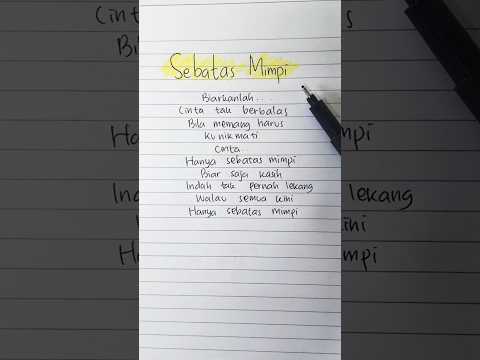 Sebatas Mimpi
Biarkanlah..
Cinta tak berbalas
Bila memang harus
Ku nikmati
Cinta
Hanya sebatas mimpi
Biar saja kasih
Indah tak pernah lekang
Walau semua kini
Hanya sebatas mimpi